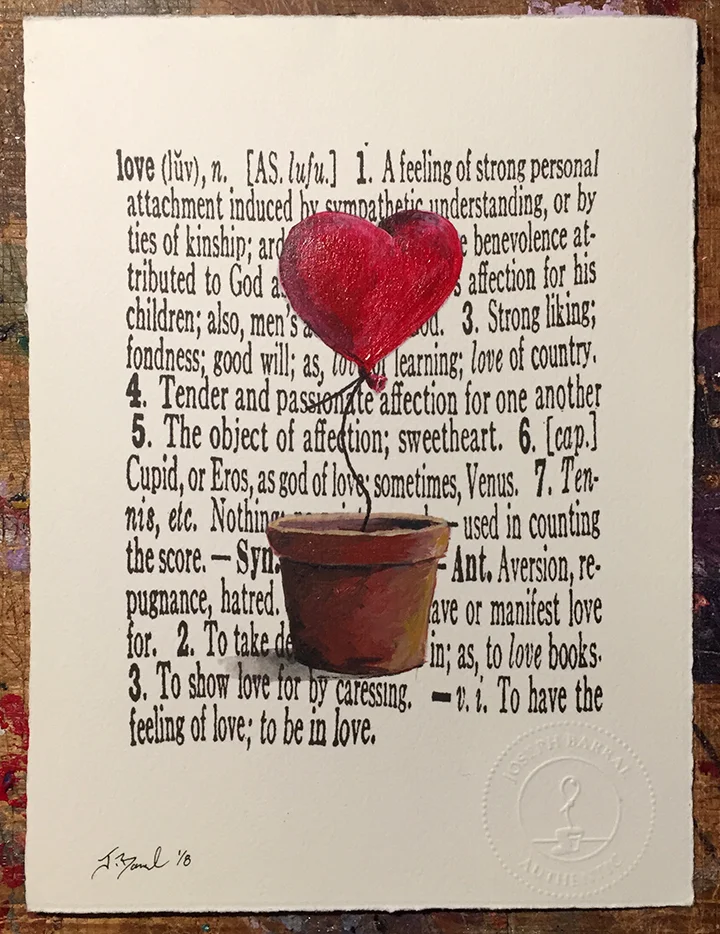 love (lŭv), n. [AS. lufu.] 1. A feeling of strong personal
attachment induced by sympathetic understanding, or by
ties of kinship; ard e benevolence at-
tributed to God as s affection for his
children; also, men's a od. 3. Strong liking;
fondness; good will; as, love of learning; love of country.
4. Tender and passionate affection for one another
5. The object of affection; sweetheart. 6. [cap.]
Cupid, or Eros, as god of love; sometimes, Venus. 7. Ten-
nis, etc. Nothing; — used in counting
the score. — Syn. — Ant. Aversion, re-
pugnance, hatred. ave or manifest love
for. 2. To take de in; as, to love books.
3. To show love for by caressing. — v. i. To have the
feeling of love; to be in love.
JOSEPH BARBAL
AUTHENTIC
1/8